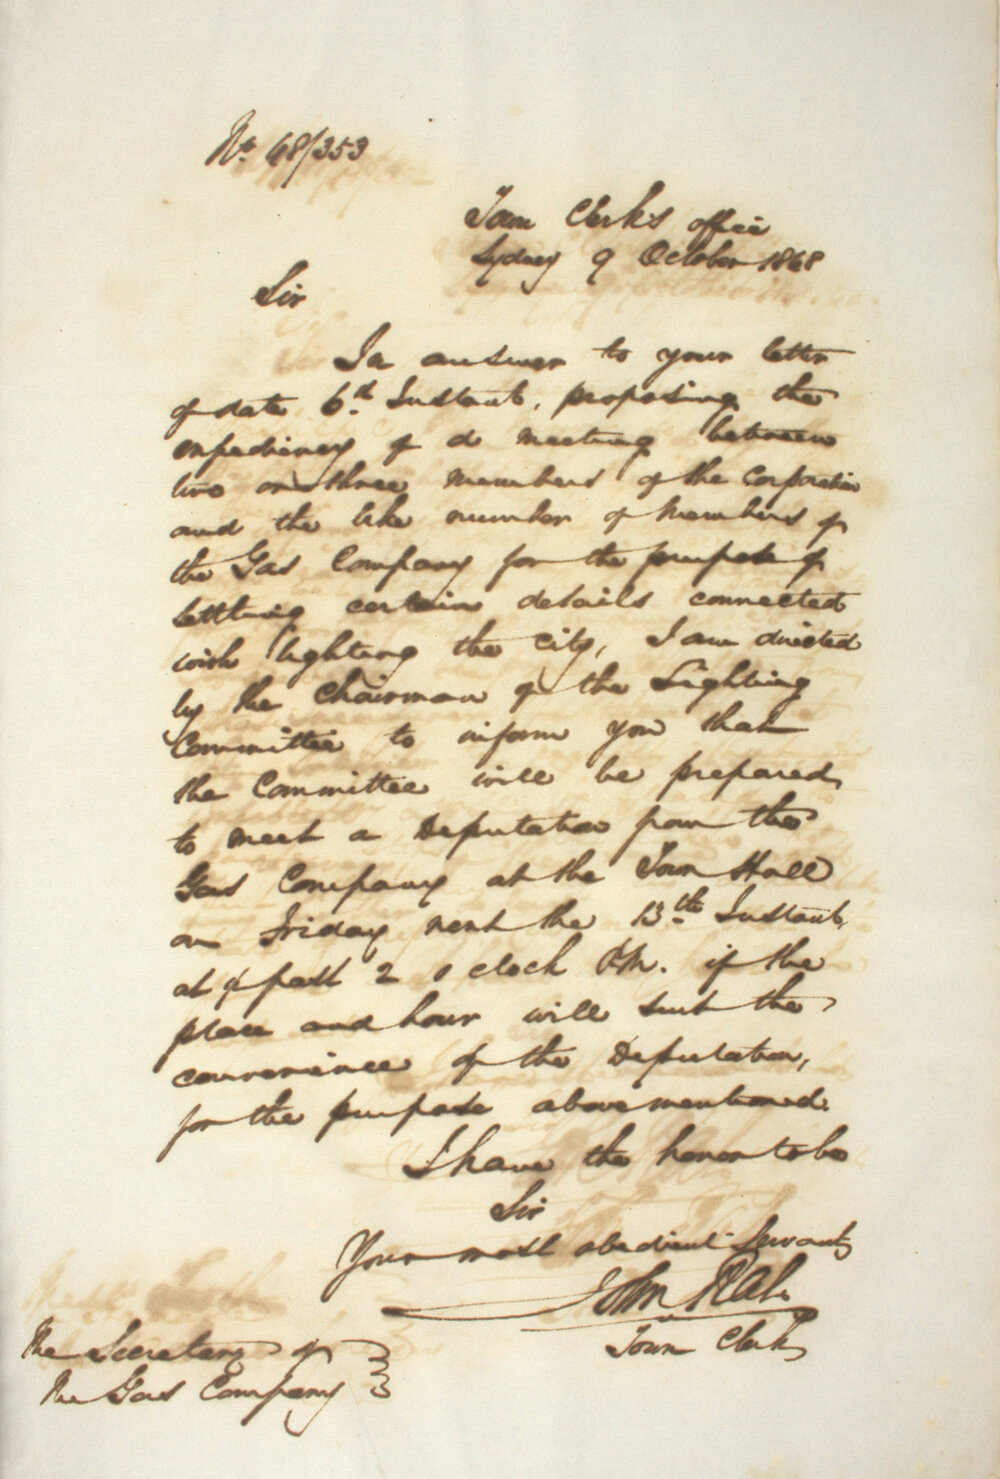 No. 48/353
Town Clerk's office
Sydney 9 October 1848
Sir
In answer to your letter
of date 6th Instant, proposing the
expediency of a meeting between
two or three members of the Corporation
and the like number of Members of
the Gas Company for the purpose of
settling certain details connected
with lighting the city, I am directed
by the Chairman of the Lighting
Committee to inform you that
the Committee will be prepared
to meet a Deputation from the
Gas Company at the Town Hall
on Friday next the 13th Instant,
at ½ past 2 o clock P.M. if the
place and hour will suit the
convenience of the Deputation,
for the purpose above mentioned.
I have the honor to be
Sir
Your most obedient Servant
John
Town Clerk
The Secretary of
The Gas Company